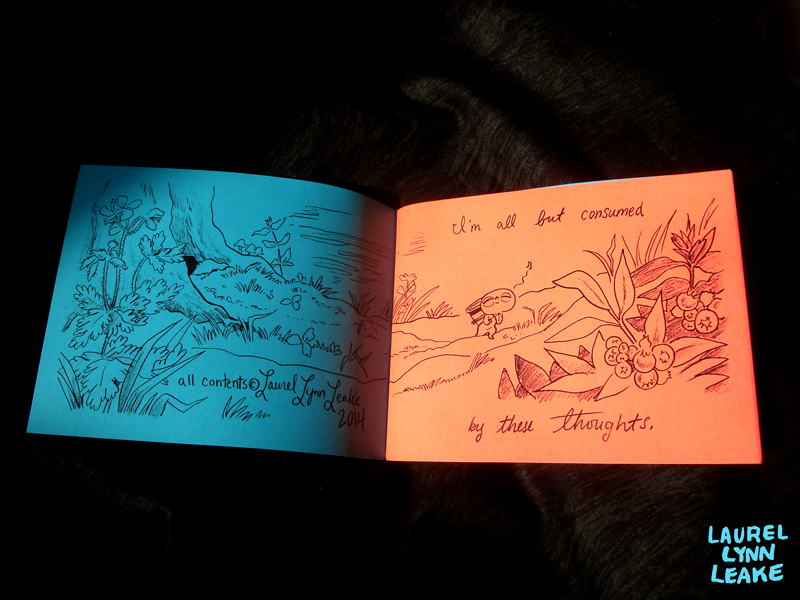 all contents© Laurel Lynn Leake
2014
I'm all but consumed
by these thoughts.
LAUREL
LYNN
LEAKE